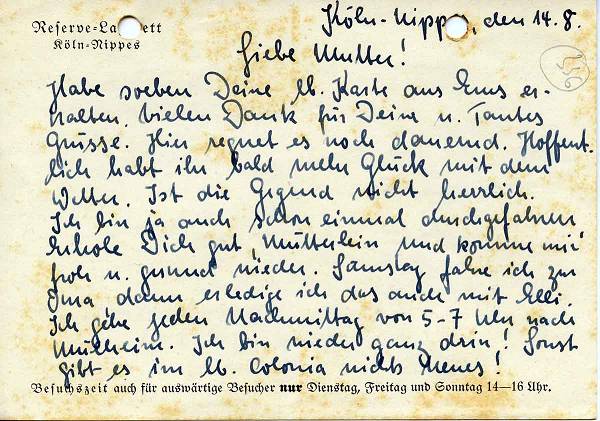 Reserve-La ett
Köln-Nippes
Köln-Nippe, den 14.8.
Liebe Mutter!
Habe soeben Deine lb. Karte aus Ems er-
halten. Vielen Dank für Deine u. Tantes
Grüsse. Hier regnet es noch dauernd. Hoffent-
lich habt ihr bald mehr Glück mit dem
Wetter. Ist die Gegend nicht herrlich.
Ich bin ja auch schon einmal durchgefahren
Erhole Dich gut, Mütterlein und komme mir
froh u. gesund wieder. Samstag fahre ich zur
Oma dann erledige ich das auch mit Elli.
Ich gehe jeden Nachmittag von 5-7 Uhr nach
Mülheim. Ich bin wieder ganz drin! Sonst
gibt es im lb. Colonia nichts Neues!
Besuchszeit auch für auswärtige Besucher nur Dienstag, Freitag und Sonntag 14—16 Uhr.